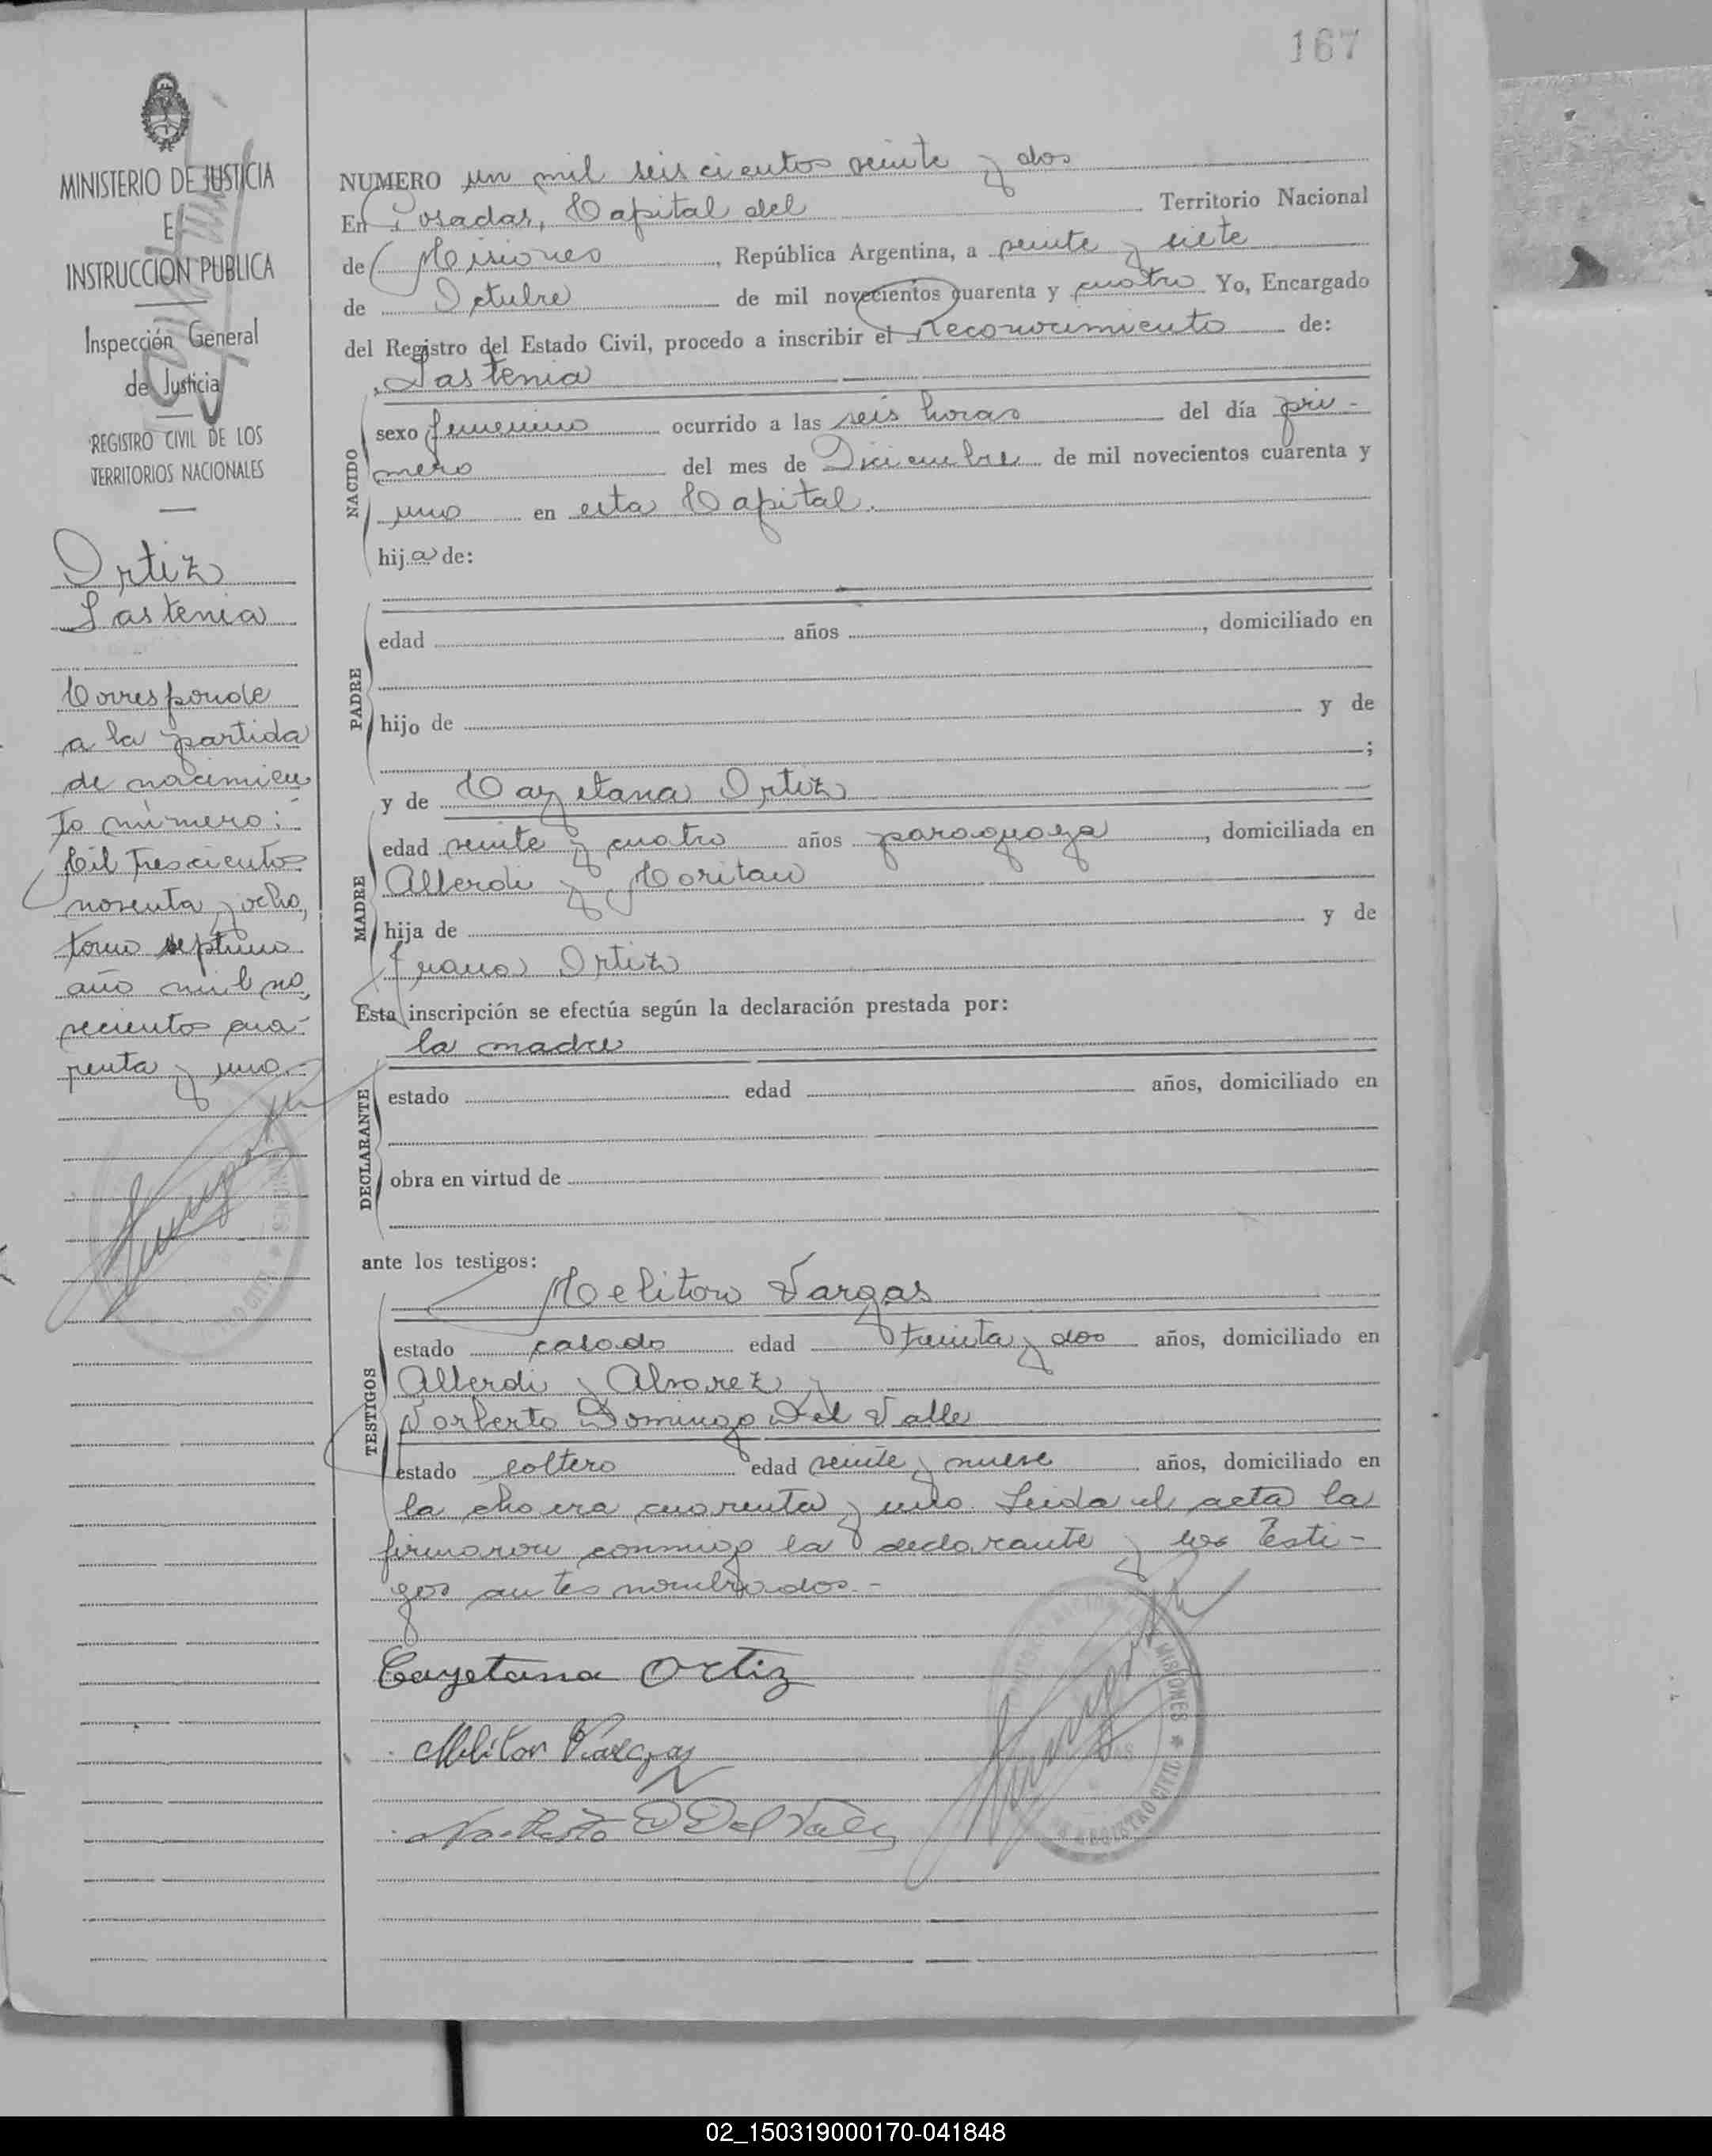 167
MINISTERIO DE JUSTICIA
E
INSTRUCCION PUBLICA
Inspección General
de Justicia
REGISTRO CIVIL DE LOS
TERRITORIOS NACIONALES
Ortiz
Lastenia
Corresponde
a la partida
de nacimien
to número:
Mil trescientos
noventa y ocho,
tomo septimo
año mil no
vecientos cua-
renta y uno.-
NUMERO un mil seis cientos veinte y dos
En Posadas, Capital del Territorio Nacional
de Misiones, República Argentina, a veinte y siete
de Octubre de mil novecientos cuarenta y cuatro Yo, Encargado
del Registro del Estado Civil, procedo a inscribir el Reconocimiento de:
Lastenia
NACIDO
sexo femenino ocurrido a las seis horas del día pri-
mero del mes de Diciembre de mil novecientos cuarenta y
uno en esta Capital.
hija de:
PADRE
edad años , domiciliado en
hijo de y de
;
MADRE
y de Cayetana Ortiz
edad veinte y cuatro años paraguaya, domiciliada en
Alberdi y
hija de y de
Juana Ortiz
Esta inscripción se efectúa según la declaración prestada por:
la madre
DECLARANTE
estado edad años, domiciliado en
obra en virtud de
ante los testigos:
TESTIGOS
Meliton Vargas
estado casado edad treinta y dos años, domiciliado en
Alberdi y Alvarez y
Norberto Domingo Del Valle
estado soltero edad veinte y nueve años, domiciliado en
la chacra cuarenta y uno. Leida el acta la
firmaron conmigo la declarante y los testi-
gos antes nombrados.-
Cayetana Ortiz
Meliton Vargas
Norberto D Del Valle
MISIONES * REGISTRO CIVIL
02_150319000170-041848